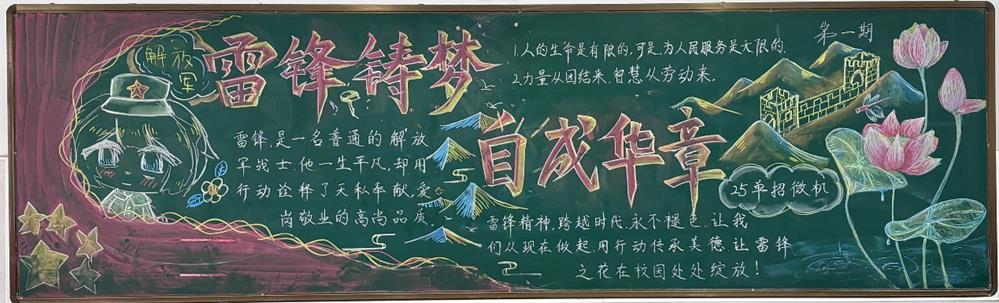 解放
军
雷锋铸梦
雷锋,是一名普通的解放
军战士,他一生平凡,却用
行动诠释了无私奉献、爱
岗敬业的高尚品质。
1.人的生命是有限的,可是,为人民服务是无限的.
2.力量从团结来,智慧从劳动来.
第一期
自成华章
25单招微机
雷锋精神,跨越时代,永不褪色,让我
们从现在做起,用行动传承美德,让雷锋
之花在校园处处绽放!